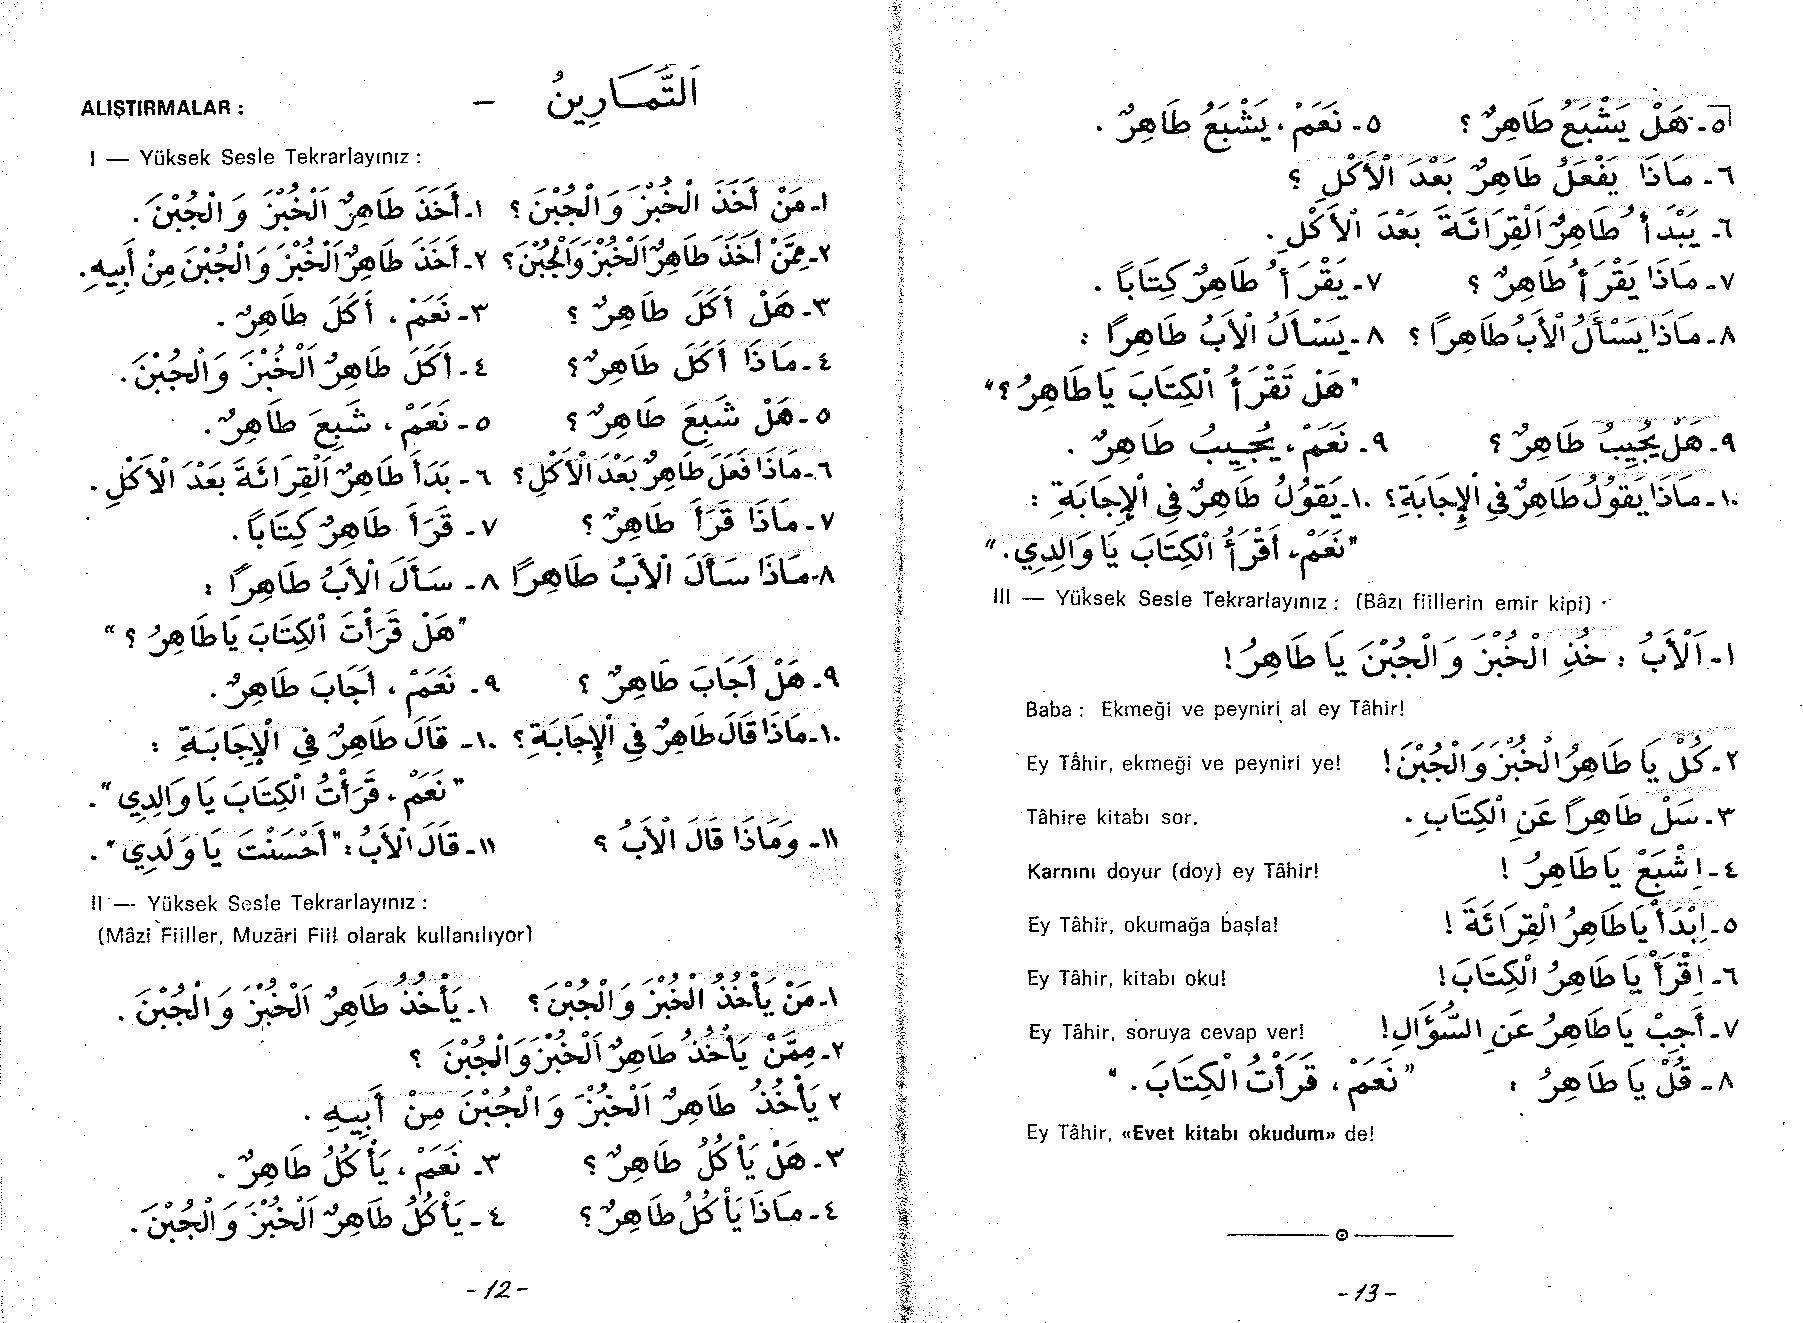 ALIŞTIRMALAR : — اَلتَّمَارِينُ
I — Yüksek Sesle Tekrarlayınız :
١- مَنْ أَخَذَ الْخُبْزَ وَالْجُبْنَ؟ ١- أَخَذَ طَاهِرٌ اَلْخُبْزَ وَالْجُبْنَ.
٢- مِمَّنْ أَخَذَ طَاهِرٌ اَلْخُبْزَ وَالْجُبْنَ؟ ٢- أَخَذَ طَاهِرٌ اَلْخُبْزَ وَالْجُبْنَ مِنْ أَبِيهِ.
٣- هَلْ أَكَلَ طَاهِرٌ؟ ٣- نَعَمْ، أَكَلَ طَاهِرٌ.
٤- مَاذَا أَكَلَ طَاهِرٌ؟ ٤- أَكَلَ طَاهِرٌ اَلْخُبْزَ وَالْجُبْنَ.
٥- هَلْ شَبِعَ طَاهِرٌ؟ ٥- نَعَمْ، شَبِعَ طَاهِرٌ.
٦- مَاذَا فَعَلَ طَاهِرٌ بَعْدَ الْأَكْلِ؟ ٦- بَدَأَ طَاهِرٌ اَلْقِرَائَةَ بَعْدَ الْأَكْلِ.
٧- مَاذَا قَرَأَ طَاهِرٌ؟ ٧- قَرَأَ طَاهِرٌ كِتَاباً.
٨- مَاذَا سَأَلَ الْأَبُ طَاهِرًا ٨- سَأَلَ الْأَبُ طَاهِرًا :
"هَلْ قَرَأْتَ الْكِتَابَ يَا طَاهِرُ؟"
٩- هَلْ أَجَابَ طَاهِرٌ؟ ٩- نَعَمْ، أَجَابَ طَاهِرٌ.
١٠- مَاذَا قَالَ طَاهِرٌ فِي الْإِجَابَةِ؟ ١٠- قَالَ طَاهِرٌ فِي الْإِجَابَةِ :
"نَعَمْ، قَرَأْتُ الْكِتَابَ يَا وَالِدِي".
١١- وَمَاذَا قَالَ الْأَبُ؟ ١١- قَالَ الْأَبُ: "أَحْسَنْتَ يَا وَلَدِي".
II — Yüksek Sesle Tekrarlayınız :
(Mâzi Fiiller, Muzâri Fiil olarak kullanılıyor)
١- مَنْ يَأْخُذُ الْخُبْزَ وَالْجُبْنَ؟ ١- يَأْخُذُ طَاهِرٌ اَلْخُبْزَ وَالْجُبْنَ.
٢- مِمَّنْ يَأْخُذُ طَاهِرٌ اَلْخُبْزَ وَالْجُبْنَ؟
٢ يَأْخُذُ طَاهِرٌ اَلْخُبْزَ وَالْجُبْنَ مِنْ أَبِيهِ.
٣- هَلْ يَأْكُلُ طَاهِرٌ؟ ٣- نَعَمْ، يَأْكُلُ طَاهِرٌ.
٤- مَاذَا يَأْكُلُ طَاهِرٌ؟ ٤- يَأْكُلُ طَاهِرٌ اَلْخُبْزَ وَالْجُبْنَ.
-12-
٥- هَلْ يَشْبَعُ طَاهِرٌ؟ ٥- نَعَمْ، يَشْبَعُ طَاهِرٌ.
٦- مَاذَا يَفْعَلُ طَاهِرٌ بَعْدَ الْأَكْلِ؟
٦- يَبْدَأُ طَاهِرٌ اَلْقِرَائَةَ بَعْدَ الْأَكْلِ.
٧- مَاذَا يَقْرَأُ طَاهِرٌ؟ ٧- يَقْرَأُ طَاهِرٌ كِتَاباً.
٨- مَاذَا يَسْأَلُ الْأَبُ طَاهِرًا؟ ٨- يَسْأَلُ الْأَبُ طَاهِرًا :
"هَلْ تَقْرَأُ الْكِتَابَ يَا طَاهِرُ؟"
٩- هَلْ يُجِيبُ طَاهِرٌ؟ ٩- نَعَمْ، يُجِيبُ طَاهِرٌ.
١٠- مَاذَا يَقُولُ طَاهِرٌ فِي الْإِجَابَةِ؟ ١٠- يَقُولُ طَاهِرٌ فِي الْإِجَابَةِ :
"نَعَمْ، أَقْرَأُ الْكِتَابَ يَا وَالِدِي."
III — Yüksek Sesle Tekrarlayınız : (Bâzı fiillerin emir kipi)
١- اَلْأَبُ : خُذِ الْخُبْزَ وَالْجُبْنَ يَا طَاهِرُ!
Baba : Ekmeği ve peyniri al ey Tâhir!
Ey Tâhir, ekmeği ve peyniri ye! ٢- كُلْ يَا طَاهِرُ الْخُبْزَ وَالْجُبْنَ!
Tâhire kitabı sor. ٣- سَلْ طَاهِرًا عَنِ الْكِتَابِ.
Karnını doyur (doy) ey Tâhir! ٤- اِشْبَعْ يَا طَاهِرُ!
Ey Tâhir, okumağa başla! ٥- اِبْدَأْ يَا طَاهِرُ الْقِرَائَةَ!
Ey Tâhir, kitabı oku! ٦- اِقْرَأْ يَا طَاهِرُ الْكِتَابَ!
Ey Tâhir, soruya cevap ver! ٧- أَجِبْ يَا طَاهِرُ عَنِ السُّؤَالِ!
٨- قُلْ يَا طَاهِرُ : "نَعَمْ، قَرَأْتُ الْكِتَابَ."
Ey Tâhir, «Evet kitabı okudum» de!
-13-